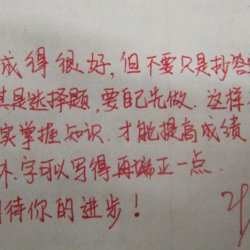 成得很好,但不要只是抄答
其是选择题,要自己先做.这样
实掌握知识.才能提高成绩
不.字可以写得再端正一点.
待你的进步!